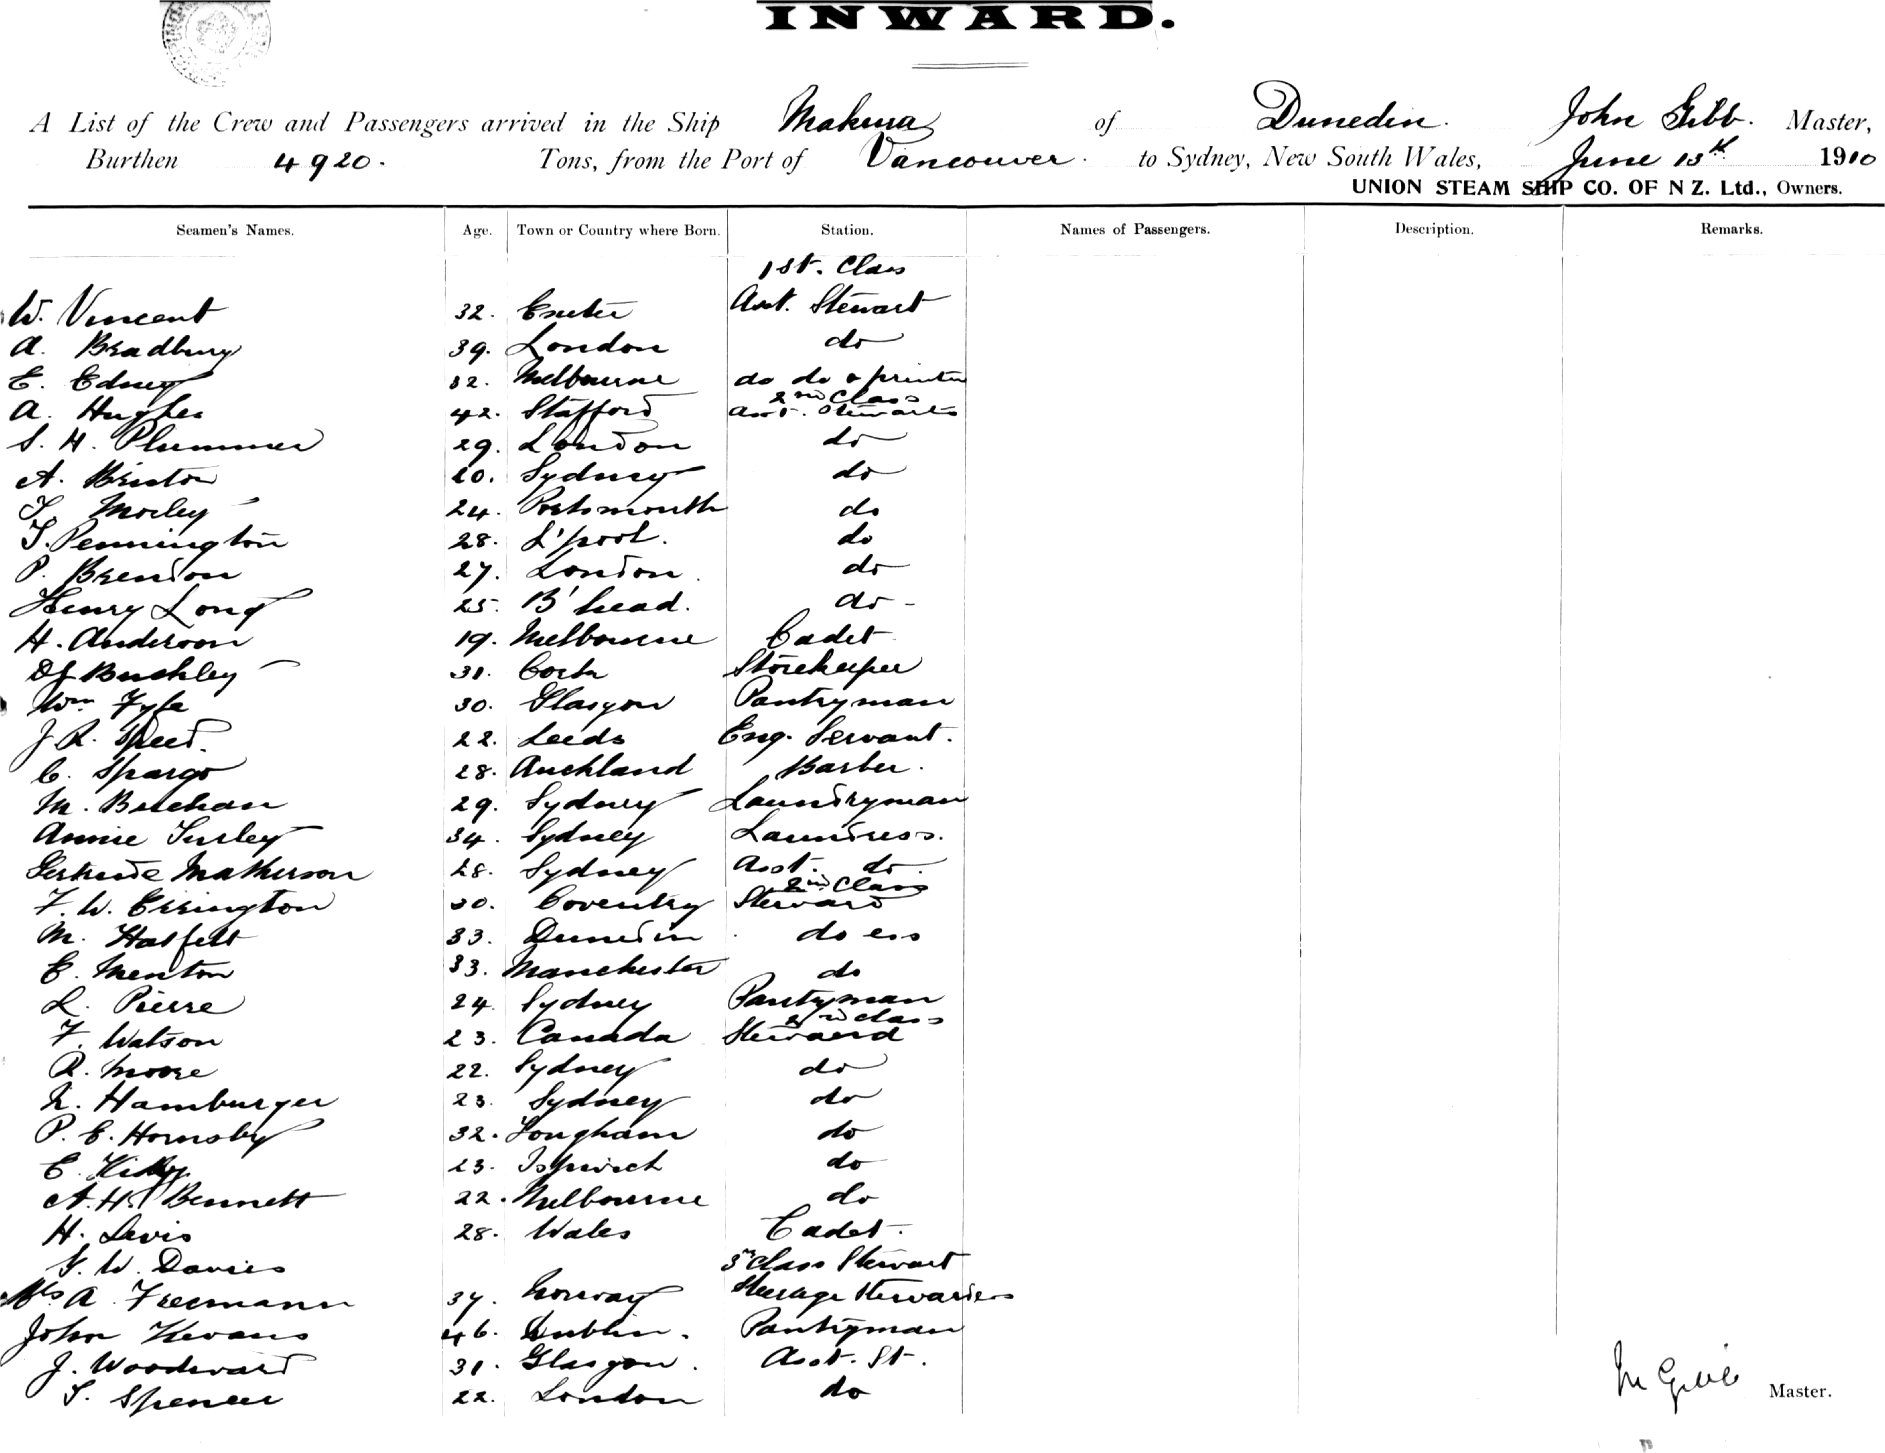 INWARD.
A List of the Crew and Passengers arrived in the Ship Makura of Dunedin. John Gibb. Master,
Burthen 4920. Tons, from the Port of Vancouver. to Sydney, New South Wales, June 13th 1910
UNION STEAM SHIP CO. OF N Z. Ltd., Owners.
Seamen's Names. Age. Town or Country where Born. Station. Names of Passengers. Description. Remarks.
1st. Class
W. Vincent 32. Exeter Asst. Stewart
A. Bradbury 39. London do
E. Edney 32. Melbourne do do & printer
2nd Class
A. Hughes 42. Stafford Asst. Stewarts
S. H. Plummer 29. London do
A. 20. Sydney do
Morley 24. Portsmouth do
T. Pennington 28. L'pool. do
P. Brendon 27. London. do
Henry Long 25. B'head. do -
H. Anderson 19. Melbourne Cadet
Buckley 31. Cork Storekeeper
Wm Fyfe 30. Glasgow Pantryman
J. R. Speed. 22. Leeds Eng. Servant.
C. Spargo 28. Auckland Barber.
M. 29. Sydney Laundryman
Annie Turley 34. Sydney Laundress.
Gertrude Matherson 28. Sydney Asst. do.
2nd Class
F. W. Errington 30. Coventry Steward
M. Hatfelt 33. Dunedin do ess
E. Menton 33. Manchester do
L. Pierre 24. Sydney Pantryman
2nd class
F. Watson 23. Canada Steward
R. Moore 22. Sydney do
N. Hamburger 23. Sydney do
P. E. Hornsby 32. Tongham do
E. 23. Ispwich do
A. H. Bennett 22. Melbourne do
H. Levis 28. Wales Cadet.
G. W. Davies 3rd class Stewart
Mrs A. Freemann 37. Norway Steerage Stewardess
John Kevans 46. Dublin. Pantryman
J. Woodward 31. Glasgow. Asst. St.
T. Spencer 22. London do
Gibb Master.